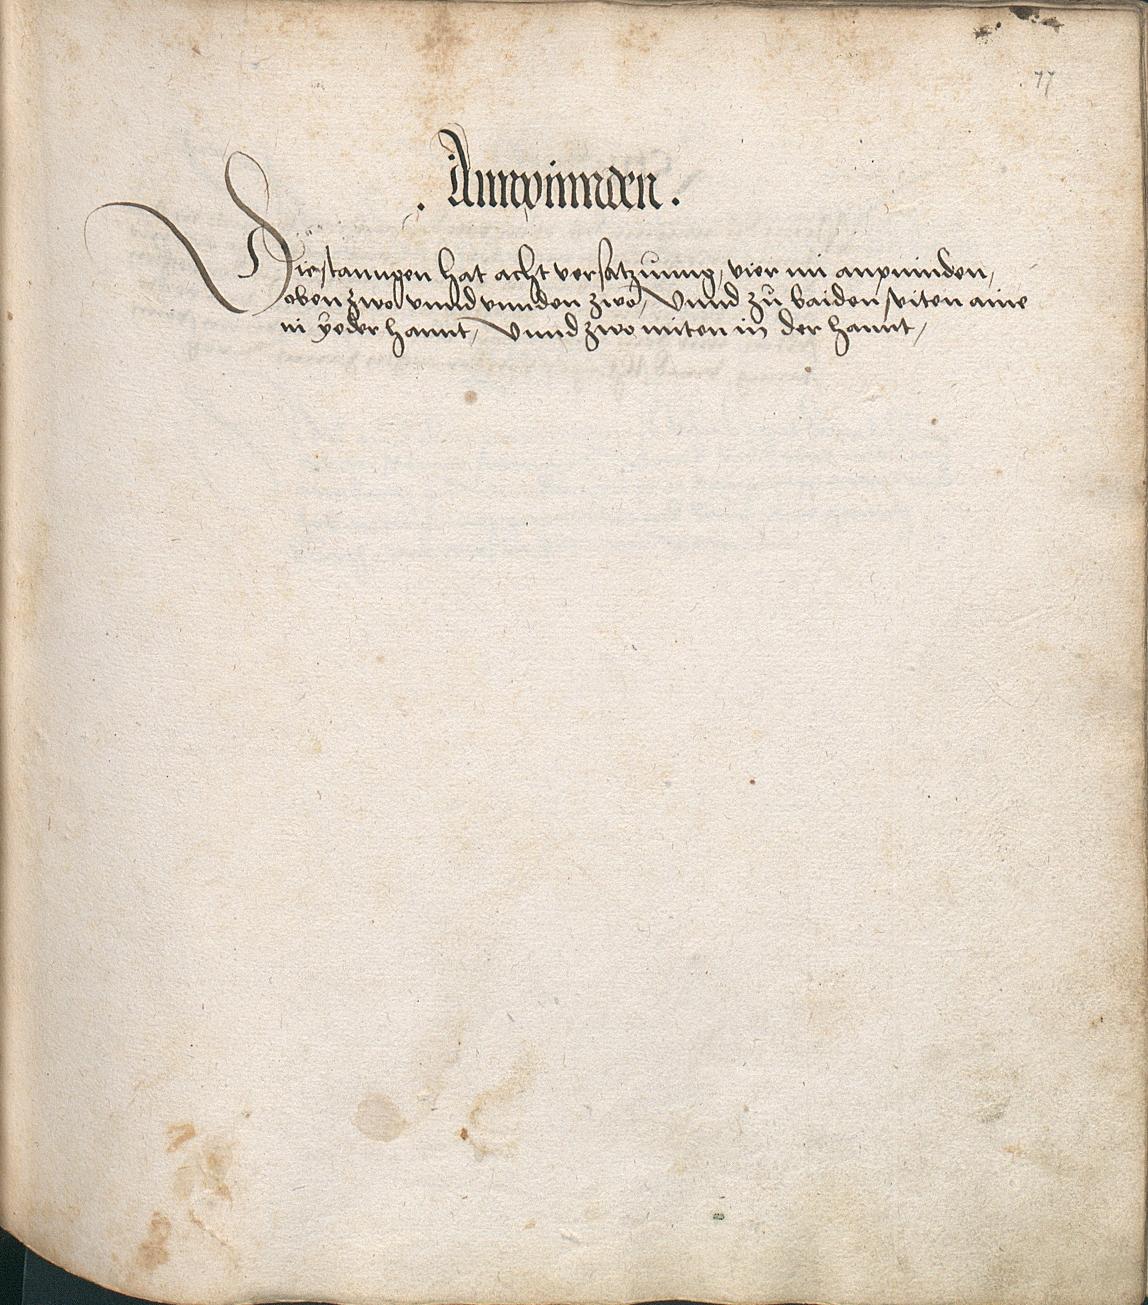 77
. Annwinnden .
Die stanngen hat acht versatzunng, vier im anpinnden,
oben zwo vnnd vnnden zwo, Vnnd zů baiden seiten aine
in yeder hannt, Vnnd zwo miten in der hannt,